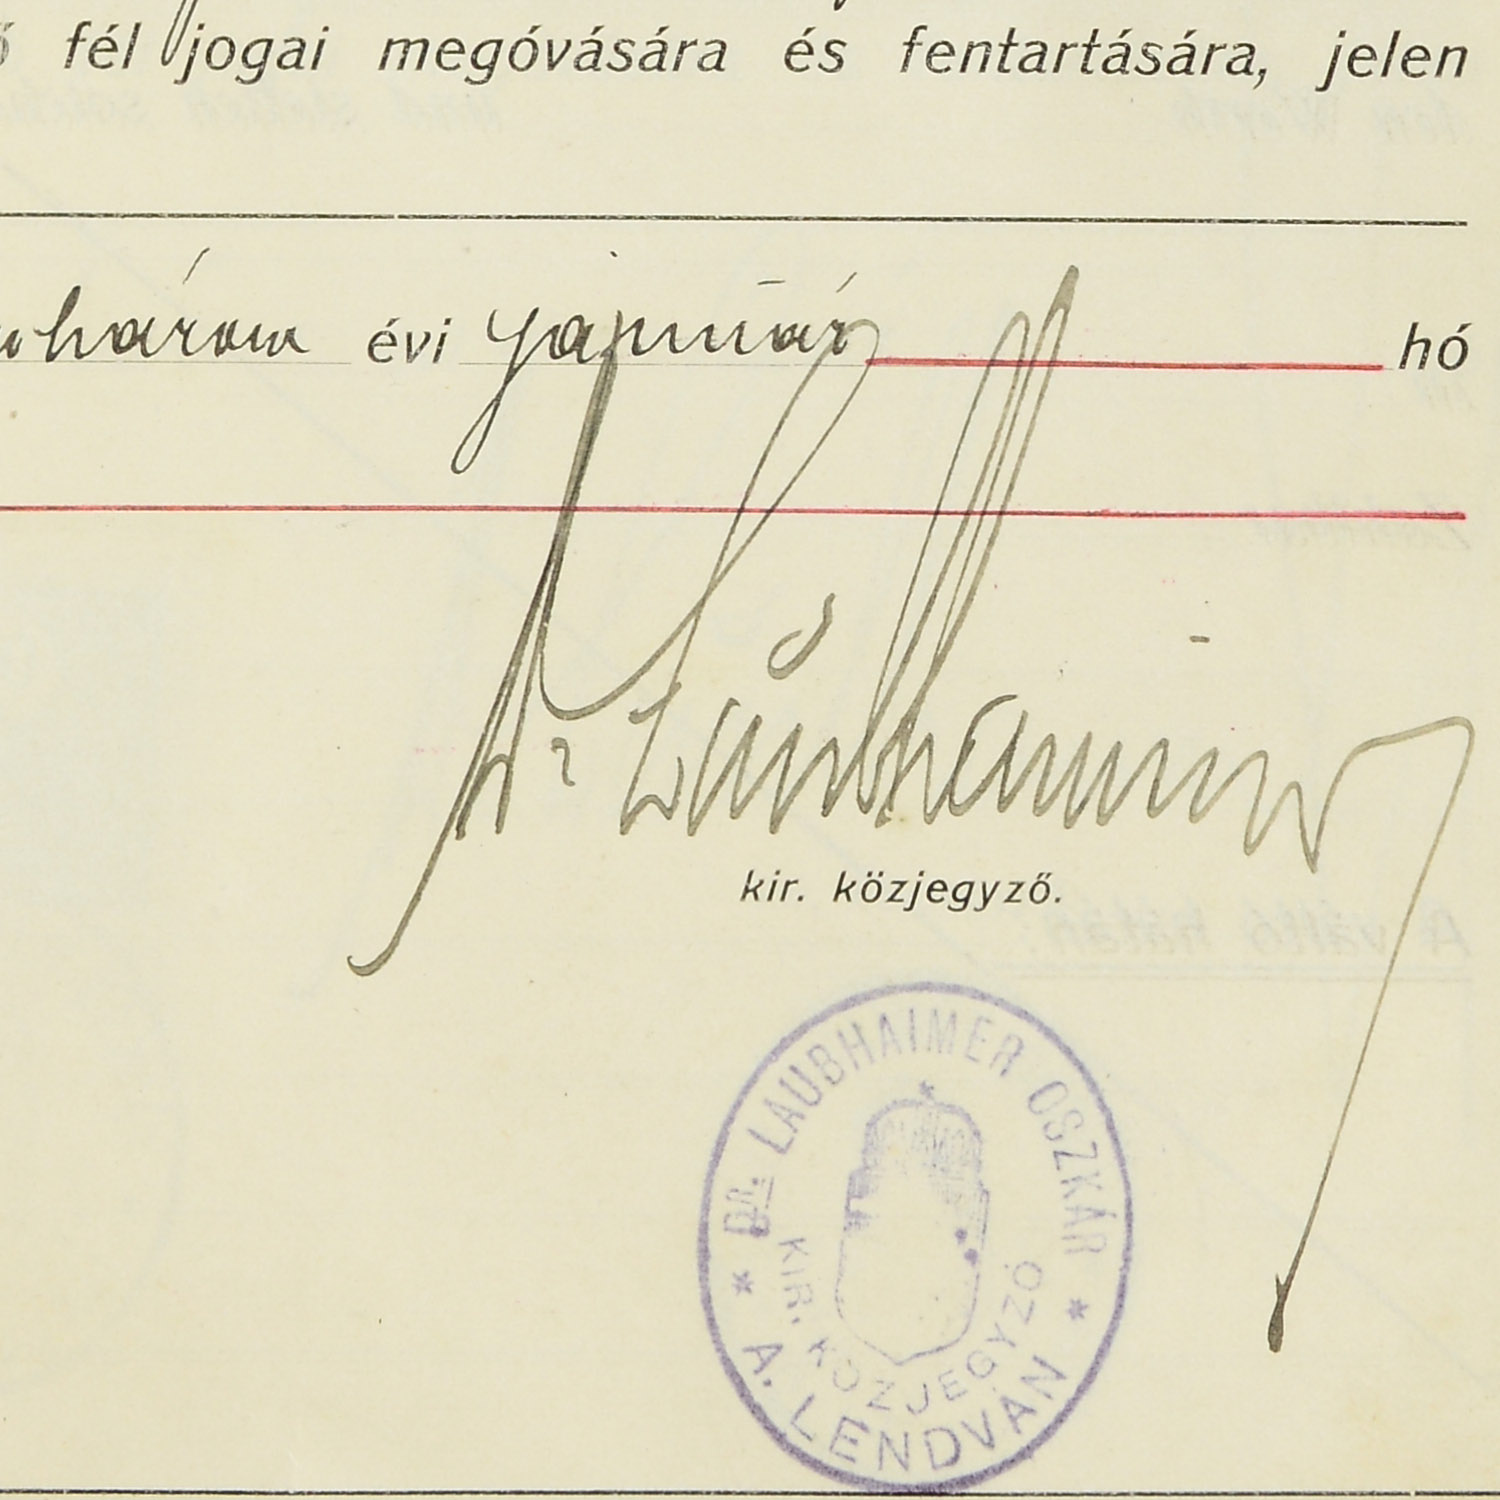 fél jogai megóvására és fentartására, jelen
három évi január hó
Dr Laubhaimer
kir. közjegyző.
DR. LAUBHAIMER OSZKÁR
KIR. KÖZJEGYZŐ
* A. LENDVÁN *